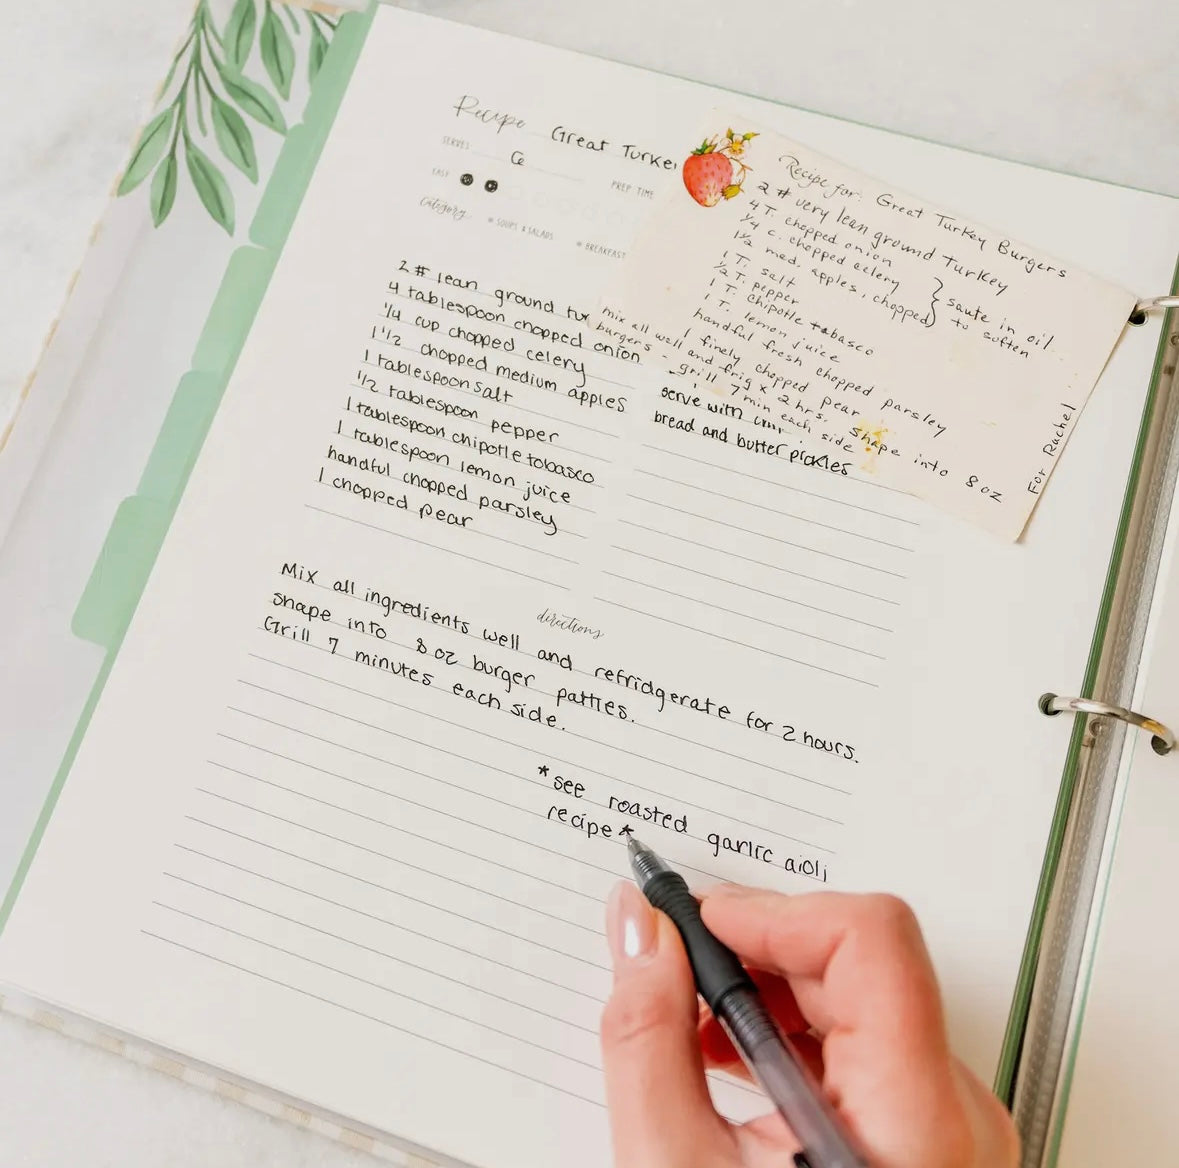 Recipe Great Turke
SERVES 6
EASY
PREP TIME
category
SOUPS & SALADS
BREAKFAST
2 # lean ground tur
4 tablespoon chopped onion
1/4 cup chopped celery
1 1/2 chopped medium apples
1 tablespoon salt
1/2 tablespoon pepper
1 tablespoon chipotle tobasco
1 tablespoon lemon juice
handful chopped parsley
1 chopped pear
serve with
bread and butter pickles
Recipe for: Great Turkey Burgers
2 # very lean ground Turkey
4 T. chopped onion
1/4 c. chopped celery
1 1/2 med. apples, chopped
} saute in oil
to soften
1 T. salt
1/2 T. pepper
1 T. chipotle tabasco
1 T. lemon juice
handful fresh chopped parsley
1 finely chopped pear
mix all well and frig x 2 hrs. Shape into 8 oz
burgers - grill 7 min each side
For Rachel
directions
Mix all ingredients well and refridgerate for 2 hours.
shape into 8 oz burger patties.
Grill 7 minutes each side.
*see roasted garlic aioli
recipe*